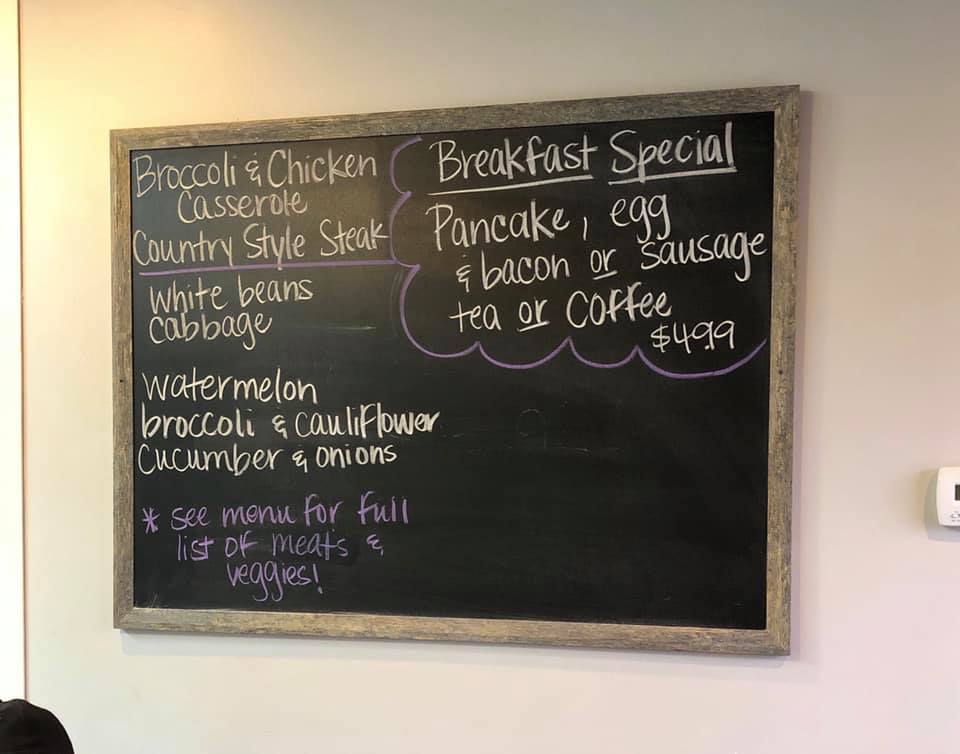 Broccoli & Chicken
Casserole
Country Style Steak
white beans
cabbage
watermelon
broccoli & cauliflower
cucumber & onions
* see menu for full
list of meats &
veggies!
Breakfast Special
Pancake, egg
& bacon or sausage
tea or coffee
$4.99